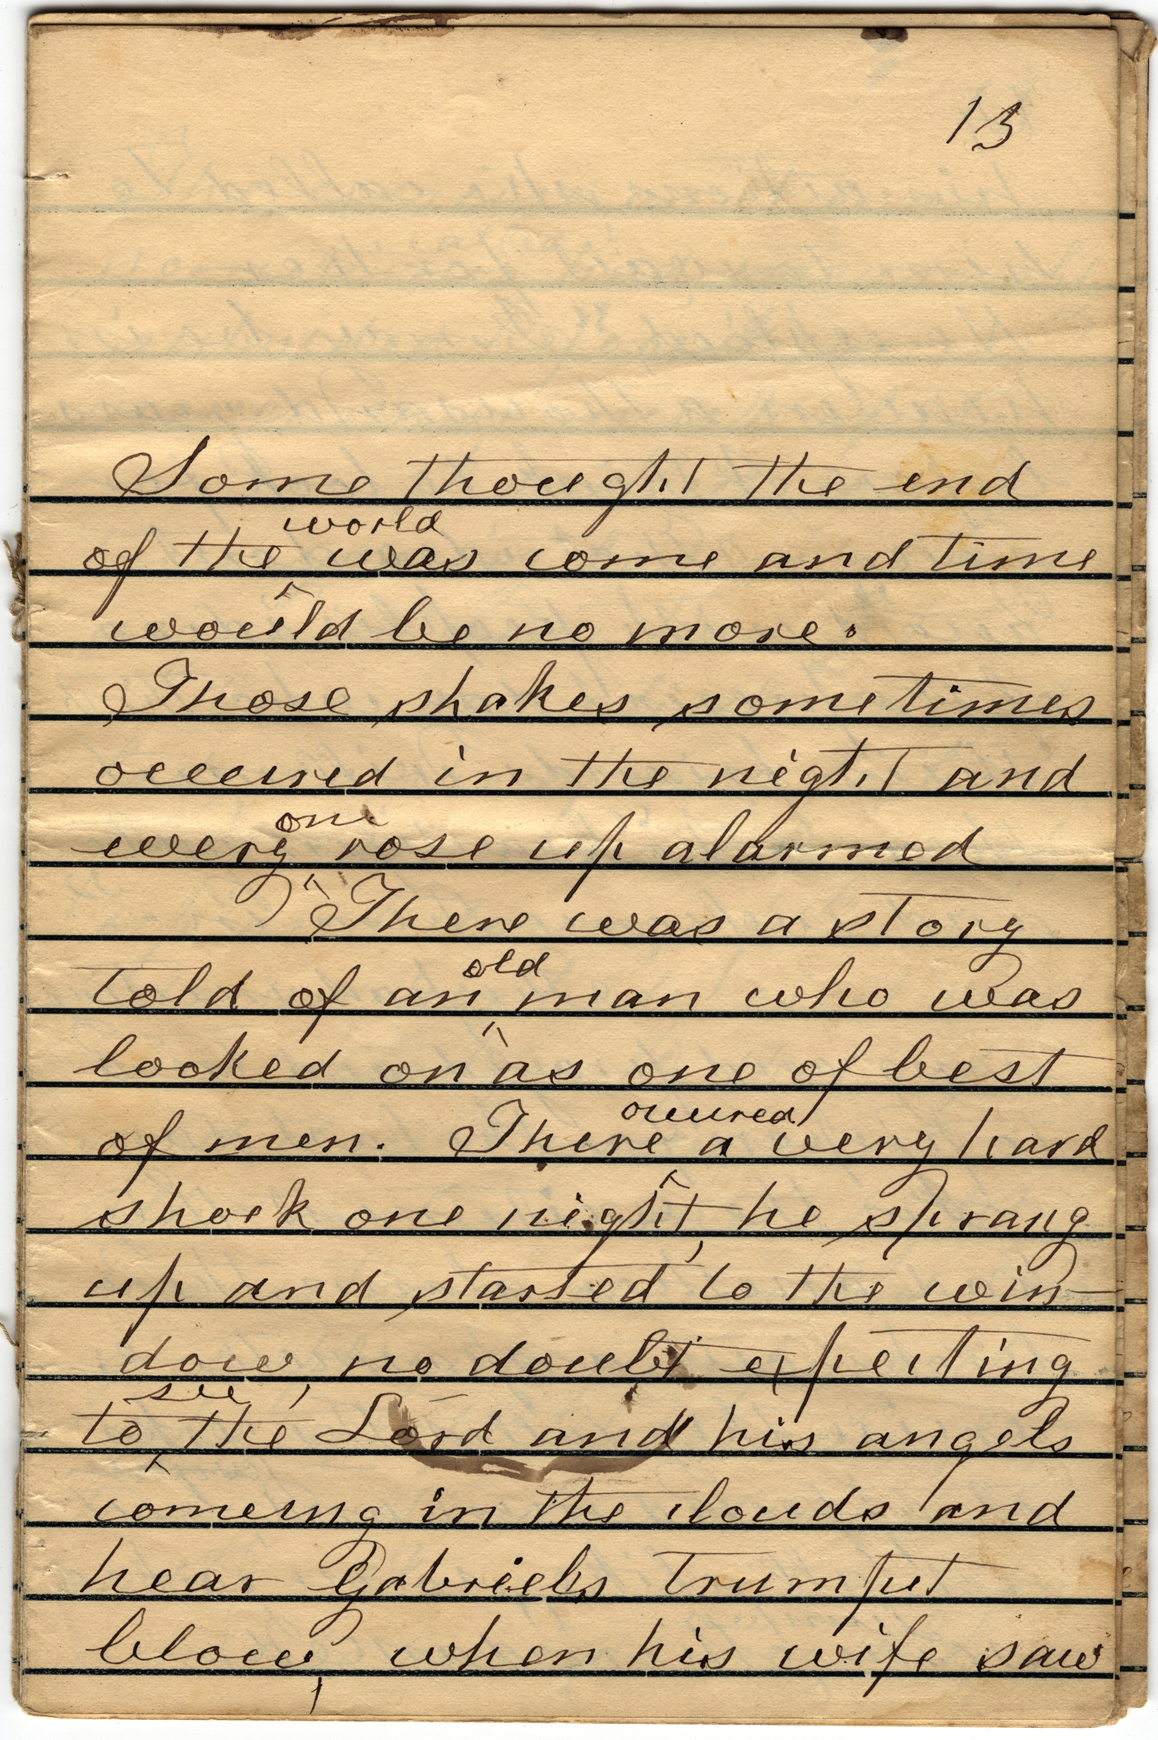 13
Some thought the end
of the world was come and time
would be no more.
Those shakes sometimes
occured in the night and
every one rose up alarmed
There was a story
told of an old man who was
looked on as one of best
of men. There occured a very hard
shock one night, he sprang
up and started to the win-
dow, no doubt expecting
to see the Lord and his angels
comeing in the clouds and
hear Gabriels trumpet
blow, when his wife saw